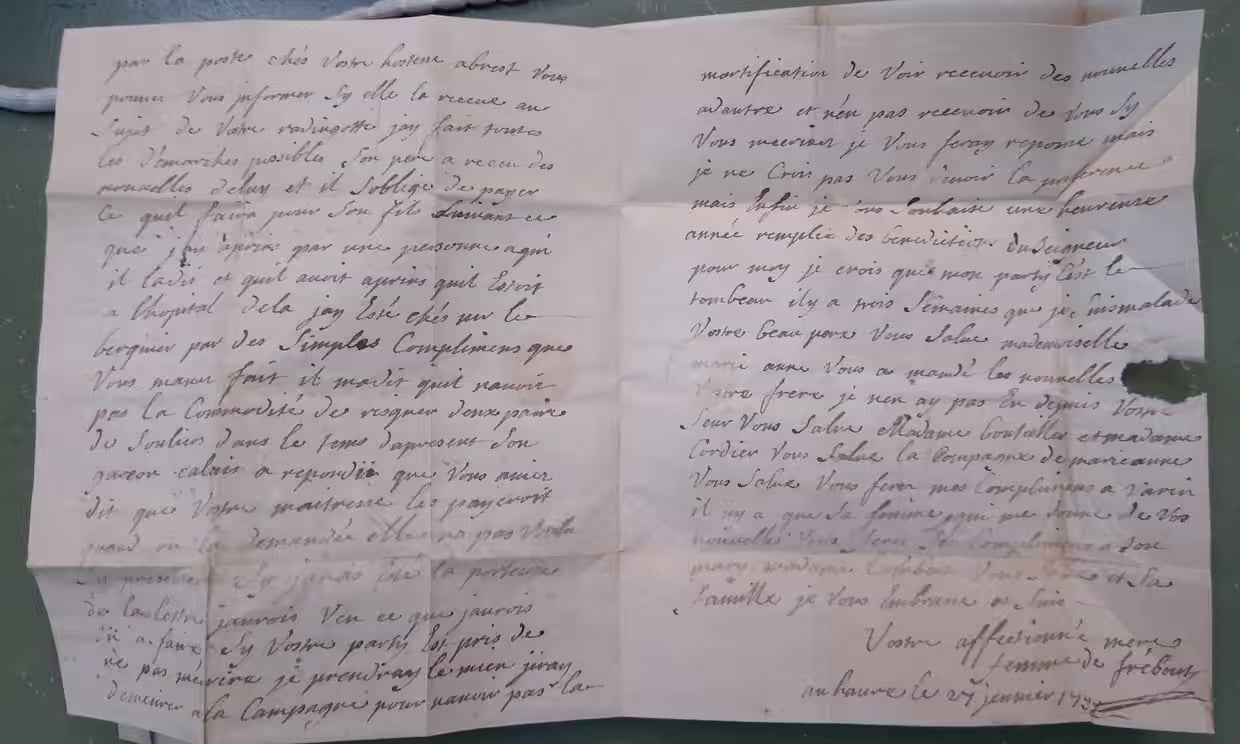 par la poste chés vostre hostesse abrest vous
pouvez vous jnformer sy elle la receue au
sujet de vostre radingotte jay fait toutes
les démarches possibles son pere a receu des
nouvelles deluy et il soblige de payer
ce quil faira pour son fils suivant ce
que jay apris par une personne aqui
il ladit et quil avoit apris quil estoit
a lhopital dela jay esté chés mr le
berginer par des simples complimens que
vous mavez fait il madit quil navoit
pas la commodité de risquer deux paire
de souliers dans le tems dapresent son
garcon calais a repondu que vous aviez
dit que vostre maitresse les payeroit
quand on la demandée elle na pas voulu
sy jamais esté la porteuse
de la lettre jaurois veu ce que jaurois
eu a faire sy vostre party est pris de
ne pas mecrire je prendray le mien jiray
demeurer ala campagne pour navoir pas la
mortification de voir recevoir des nouvelles
adautre et nen pas recevoir de vous sy
vous mecrivez je vous feray reponse mais
je ne crois pas vous avoir la preference
mais enfin je vous souhaite une heureuse
année remplie des benedictions du seigneur
pour moy je crois que mon party cest le
tombeau ily a trois semaines que je suis malade
vostre beau pere vous salue mademoiselle
marie anne vous a mandé les nouvelles
vostre frere je nen ay pas eu depuis vostre
seur vous salue madame bouteiller et madame
cordier vous salue la compagne de marieanne
vous salue vous ferez mes complimens a varin
il ny a que sa femme qui me donne de vos
nouvelle vous ferez des complimens a son
mary madame vous salue et sa
famille je vous embrasse et suis
vostre affectionnée mere
femme de frebourg
au havre le 27 jenvier